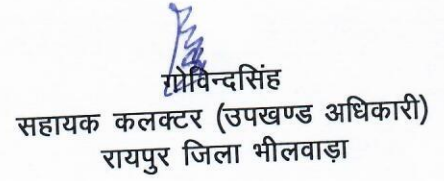 गोविन्दसिंह
सहायक कलक्टर (उपखण्ड अधिकारी)
रायपुर जिला भीलवाड़ा